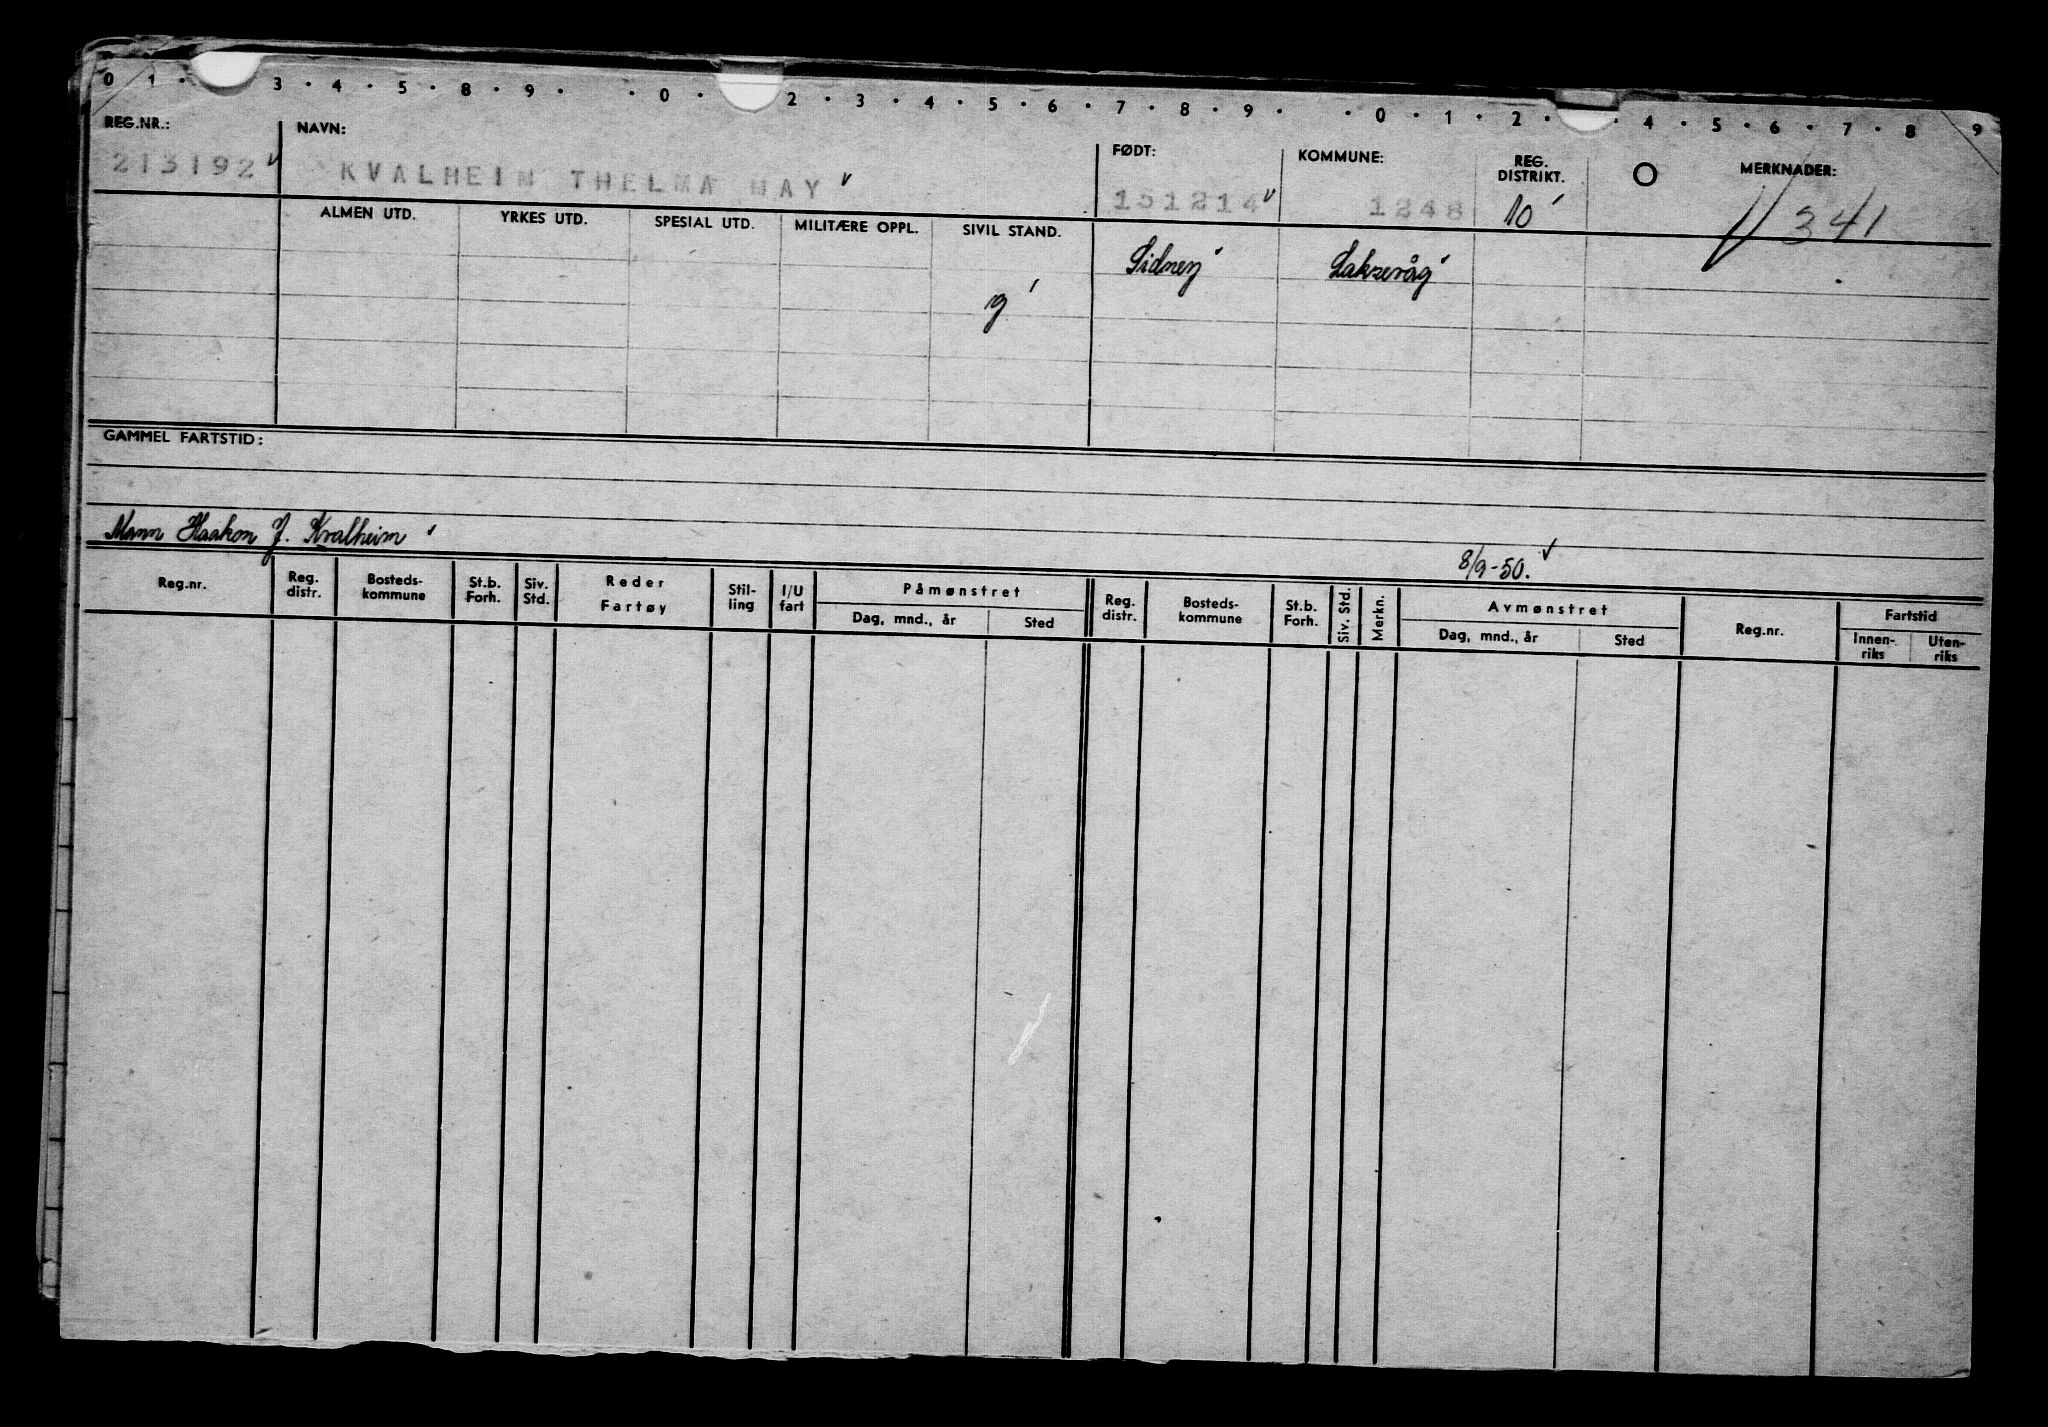 0 1 · 3 · 4 · 5 · 8 · 9 · · 0 · 2 · 3 · 4 · 5 · 6 · 7 · 8 · 9 · · 0 · 1 · 2 · · 4 · 5 · 6 · 7 · 8 9
REG.NR.: NAVN: FØDT: KOMMUNE: REG. DISTRIKT. O MERKNADER:
213192 KVALHEIM THELMA MAY 151214 1248 10 341
ALMEN UTD. YRKES UTD. SPESIAL UTD. MILITÆRE OPPL. SIVIL STAND.
Sidney Lakzevåg
g
GAMMEL FARTSTID:
Mann Haakon J. Kvalheim
8/9-50.
Reg.nr. Reg. distr. Bosteds- kommune St.b. Forh. Siv. Std. Reder Fartøy Stil- ling I/U fart Påmønstret Reg. distr. Bosteds- kommune St.b. Forh. Siv. Std. Merkn. Avmønstret Reg.nr. Fartstid
Dag, mnd., år Sted Dag, mnd., år Sted Innen- riks Uten- riks